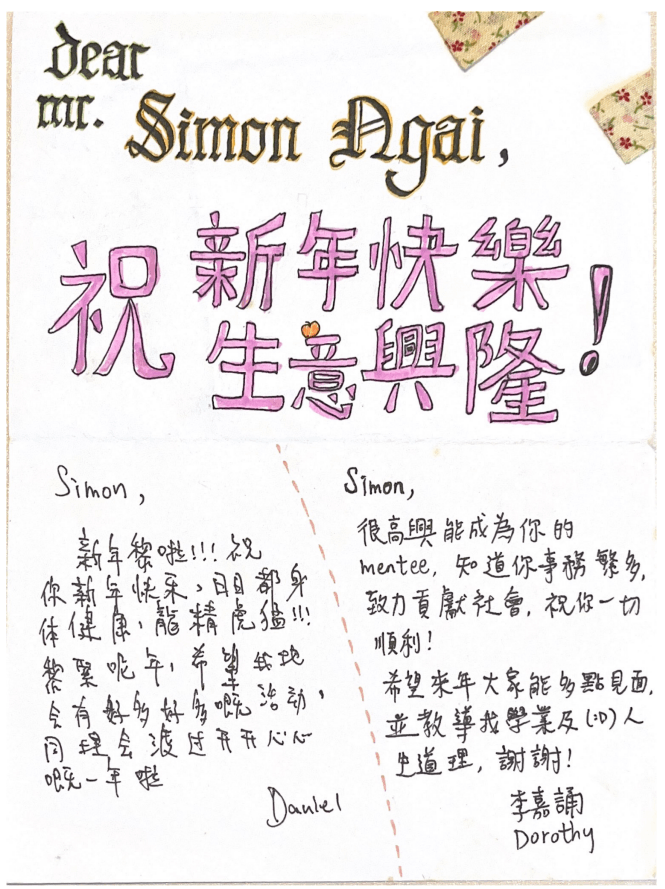 dear
mr. Simon Ngai,
祝 新年快樂
生意興隆!
Simon,
新年黎啦!!! 祝
你新年快乐,日日都身
体健康,龍精虎猛!!!
黎緊呢年,希望我地
会有好多好多嘅活动,
同埋会渡过开开心心
嘅一年啦
Daniel
Simon,
很高興能成為你的
mentee, 知道你事務繁多,
致力貢獻社會, 祝你一切
順利!
希望來年大家能多點見面,
並教導我學業及(:D)人
生道理, 謝謝!
李嘉誦
Dorothy